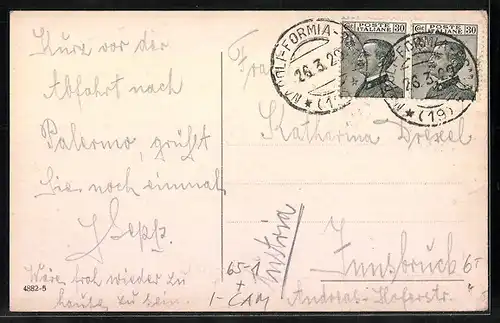 Kurz vor der
Abfahrt nach
Palermo, grüßt
Sie noch einmal
Sepp.
Wäre froh wieder zu
hause zu sein.
4882-5
POSTE ITALIANE 30
POSTE ITALIANE 30
NAPOLI-FORMIA-
26.3.29
(19)
26.3.29
(19)
Katharina Drexel
Innsbruck
Andreas-Hoferstr.
Austria
65-1
+
1-CAM
6-